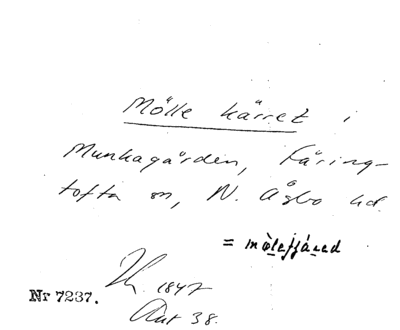 Mölle kärret i
Munkagården, Färing-
tofta sn, N. Åsbo hd.
= mòlefjáred
1847
Nr 7237.
Akt 38.